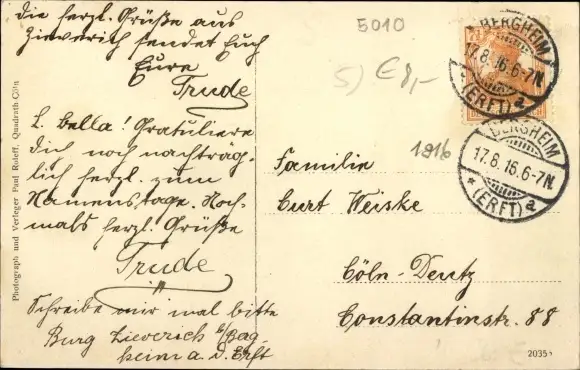 Die herzl. Grüße aus
Zieverich sendet Euch
Eure
Trude
L. Bella! Gratuliere
Dich noch nachträg-
lich herzl. zum
Namenstage. Noch-
mals herzl. Grüße
Trude
Schreibe mir mal bitte
Burg Zieverich b/Berg-
heim a. d. Erft
Photograph und Verleger Paul Roleff, Quadrath-Cöln
5010
5) € 8,-
1916
BERGHEIM
17.8.16.6-7N.
* (ERFT) a
BERGHEIM
17.8.16.6-7N.
* (ERFT) a
7½
Familie
Curt Weiske
Cöln-Deutz
Constantinstr. 88
20355